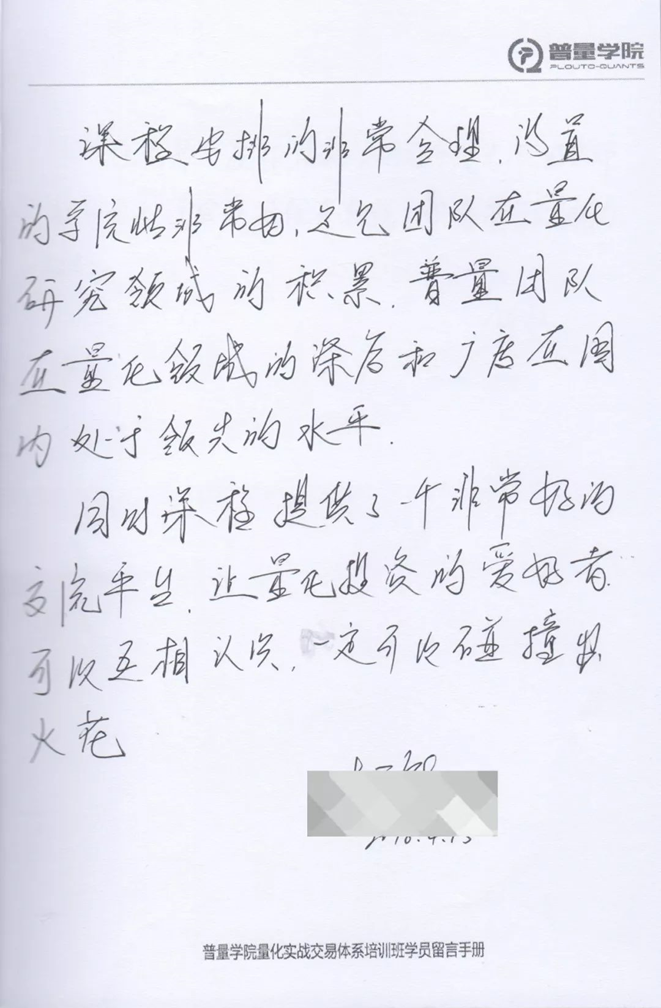 普量学院
PLOUTO-QUANTS
课程安排的非常合理，设置
的学院性非常好，这是团队在量化
研究领域的积累，普量团队
在量化领域的深度和广度在国
内处于领先的水平.
同时课程提供了一个非常好的
交流平台，让量化投资的爱好者
可以互相认识，一定可以碰撞出
火花
普量学院量化实战交易体系培训班学员留言手册